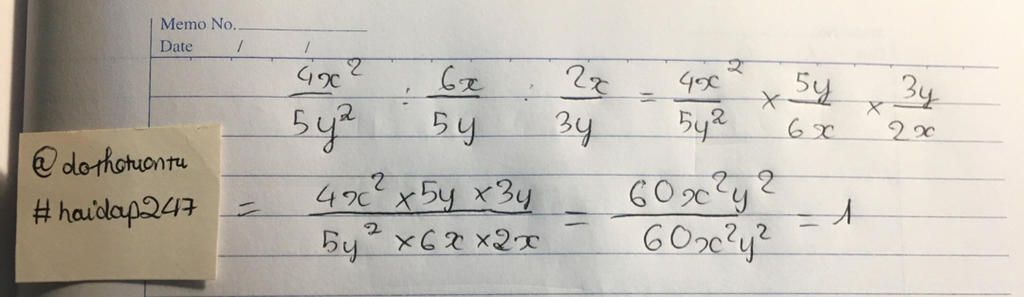 Memo No.
Date / /
4x²/5y² : 6x/5y : 2x/3y = 4x²/5y² × 5y/6x × 3y/2x
@dothotuontu
#haidap247
= 4x² × 5y × 3y / 5y² × 6x × 2x = 60x²y²/60x²y² = 1